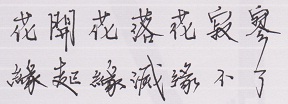 花開花落花寂寥
緣起緣滅緣不了